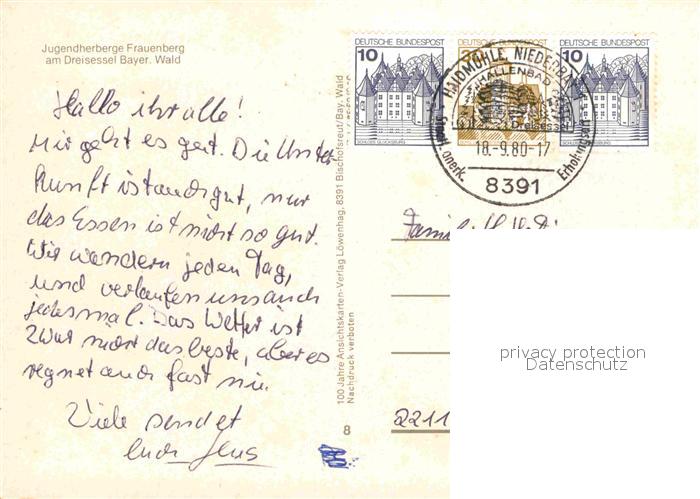 Jugendherberge Frauenberg
am Dreisessel Bayer. Wald
Hallo ihr alle!
Mir geht es gut. Die Unter-
kunft ist auch gut, nur
das Essen ist nicht so gut.
Wir wandern jeden Tag,
und verlaufen uns auch
jedesmal. Das Wetter ist
zwar nicht das beste, aber es
regnet auch fast nie.
Viele sendet
euch Jens
100 Jahre Ansichtskarten-Verlag Löwenhag, 8391 Bischofsreut/Bay. Wald
Nachdruck verboten
8
DEUTSCHE BUNDESPOST
10
SCHLOSS GLÜCKSBURG
DEUTSCHE BUNDESPOST
DEUTSCHE BUNDESPOST
10
SCHLOSS GLÜCKSBURG
HAIDMÜHLE, NIEDERBAY
HALLENBAD
Dreisessel
18.-9.80-17
8391
Staatl. anerk. Erholungsort
Familie
2211
privacy protection
Datenschutz